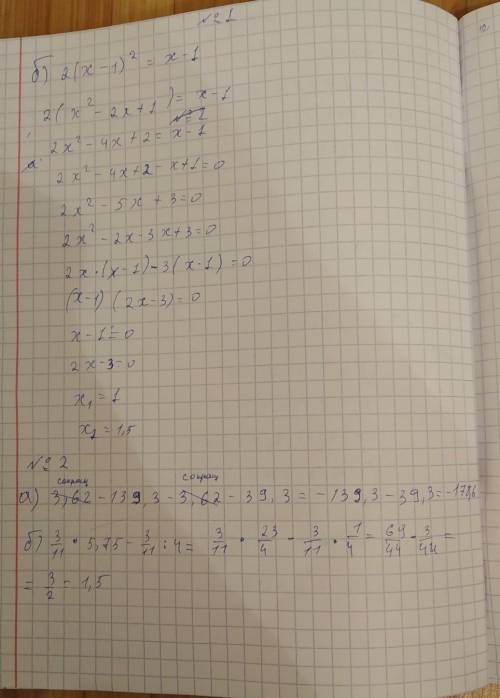 №1
б) 2(x-1)² = x-1
2(x² - 2x+1) = x-1
2x² - 4x+2 = x-1
2x² - 4x+2 - x+1=0
2x² - 5x + 3=0
2x² - 2x-3x+3=0
2x·(x-1)-3(x-1)=0
(x-1)(2x-3)=0
x-1=0
2x-3=0
x₁ = 1
x₂ = 1,5
№2
сокращ сокращ
а) 3,62-139,3-3,62-39,3 = -139,3-39,3=-178,6
б) 3/11 · 5,75 - 3/11 : 4 = 3/11 · 23/4 - 3/11 · 1/4 = 69/44 - 3/44 =
= 3/2 = 1,5